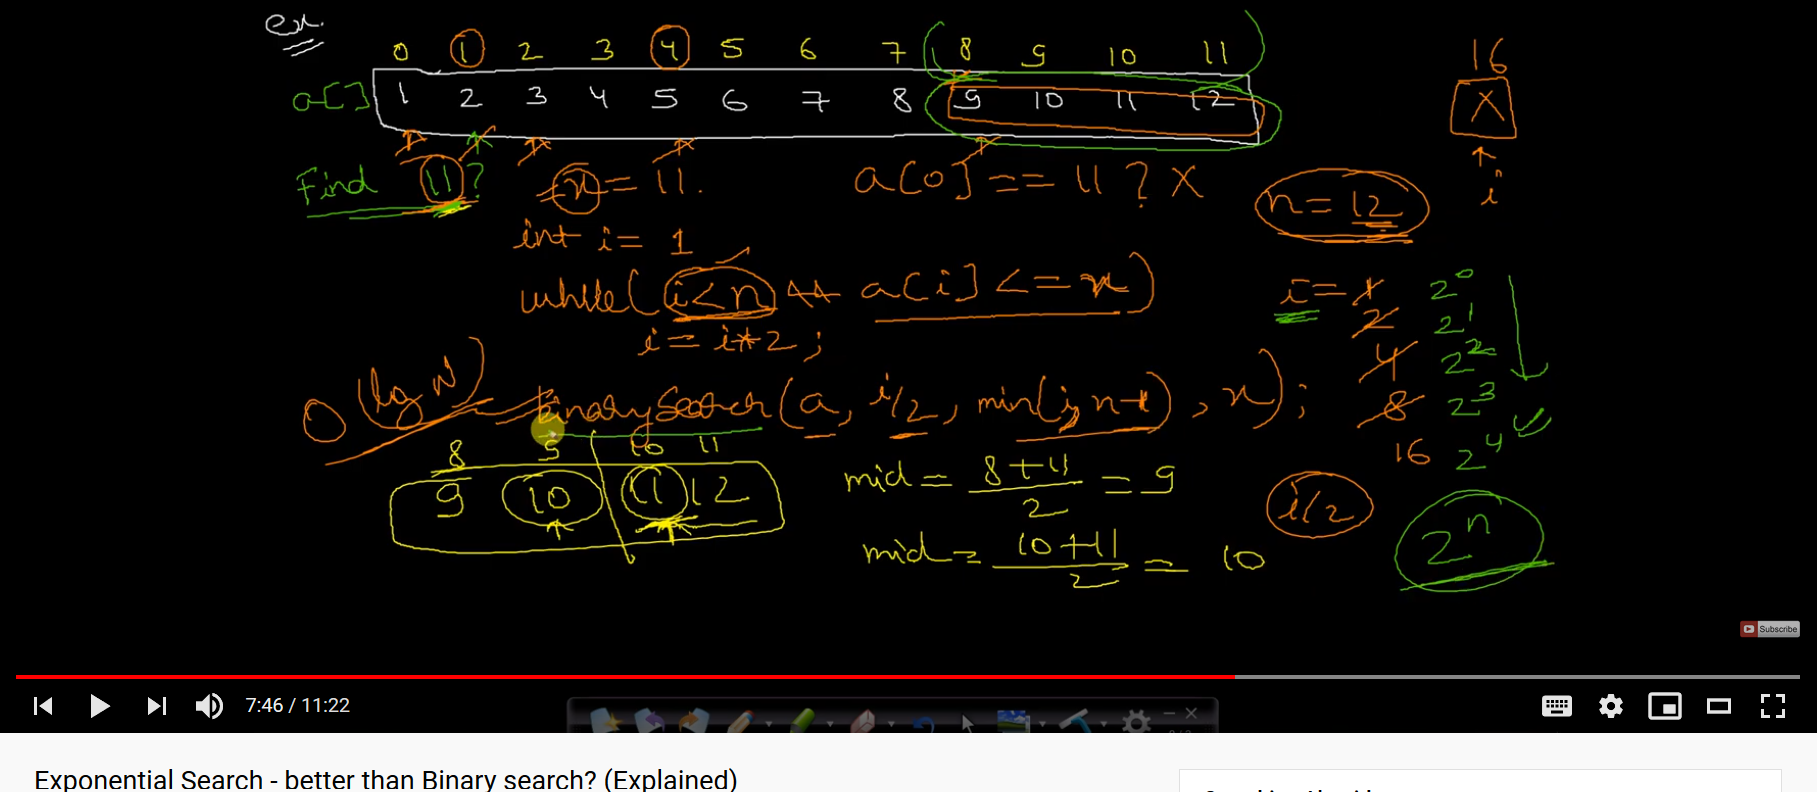 ex.
0 1 2 3 4 5 6 7 8 9 10 11
16
a[] 1 2 3 4 5 6 7 8 9 10 11 12
X
Find 11?
x = 11.
a[0] == 11 ? X
n = 12
i
int i = 1
while(i<n && a[i] <= x)
i = i*2;
i = 1 2 4 8 16
2^0
2^1
2^2
2^3
2^4
O(log N)
binarySearch(a, i/2, min(i, n-1), x);
8 9 10 11
9 10 11 12
mid = 8+11 / 2 = 9
mid = 10+11 / 2 = 10
i/2
2^n
Subscribe
7:46 / 11:22
Exponential Search - better than Binary search? (Explained)